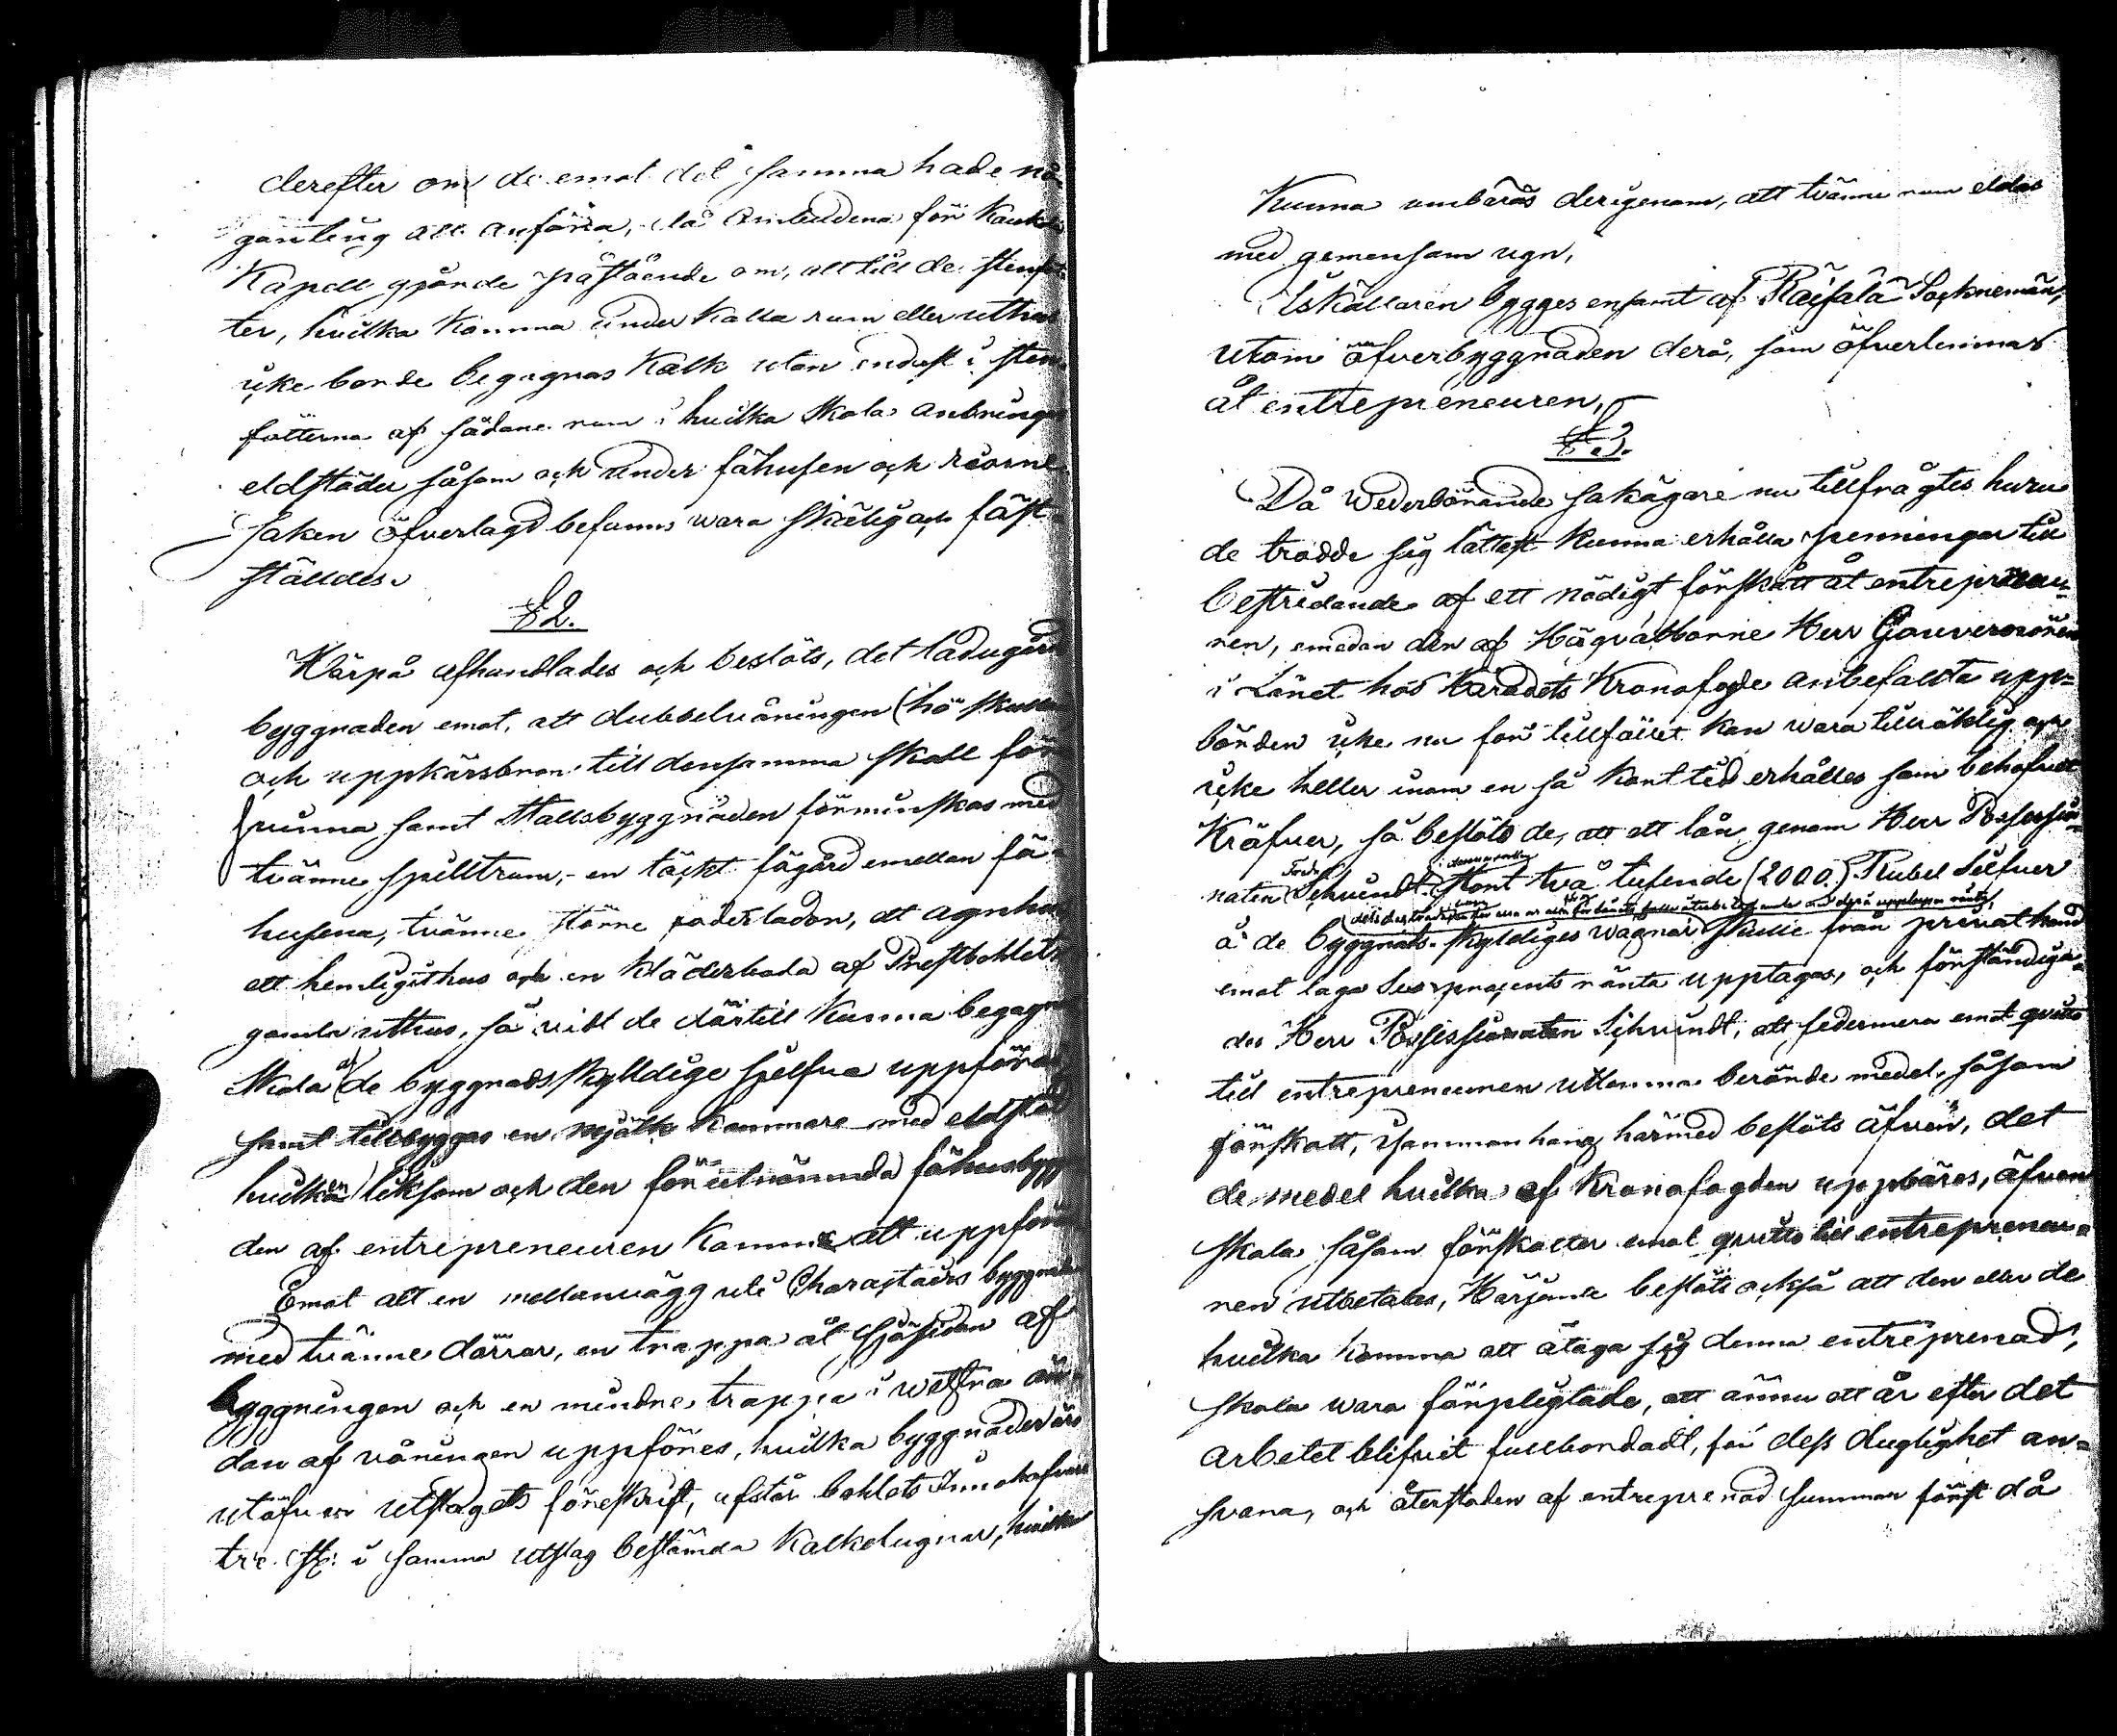 derefter om de emot det samma hade nå-
gonting att anföra, då Ombudena för Kaukola
Kapell gjorde påstående om, att till de stenföt-
ter, hvilka komma under kalla rum eller uthus
icke borde begagnas kalk utan endast i sten-
fötterna af sådane rum i hvilka skola anbringas
eldstäder såsom och under fähusen och
saken öfverlagd befanns wara skälig och fast-
ställdes.
§ 2.
Härpå afhandlades och beslöts, det ladugårds
byggnaden emot, att dubbelvåningen (hö skullen
och uppkörsbron till densamma skall för-
svinna samt Stallsbyggnaden förminskas med
tvänne spilltrum, en täckt fägård emellan fä-
husena, tvänne större foderlador, ett agnhus
ett hemligithus och en kläderboda af Prestbohlets
gamla uthus, så vidt de därtill kunna begagnas
skola af de byggnads skyldige sjelfva uppföras
samt tillbyggas en mjölk kammare med eldstad
hvilken liksom och den förutnämnda fähusbygna-
den af entrepreneuren komme att uppföra
Emot att en mellanvägg uti Charactairs byggnaden
med tvänne dörrar, en trappa åt sjösidan af
byggningen och en mindre trappa i westra än-
dan af våningen uppföres, hvilka byggnader äro
utöfver utslagets föreskrift, afstår bohlets Innehafvare
tre st: i samma utslag bestämda kakelugnar, hvilka
Kunna umbäras derigenom, att tvänne rum eldas
med gemensam ugn,
Iskällaren bygges ensamt af Räisälä Sockenmän,
utom öfverbyggnaden derå, som öfverlemnas
åt entrepreneuren,
§ 3.
Då Wederbörande sakägare nu tillfrågtes huru
de trodde sig lättast kunna erhålla penningar till
bestridande af ett nödigt förskott åt entrepreneu-
ren, emedan den af Högvälborne Herr Gouverneuren
i Länet hos Häradets Kronofogde anbefallta upp-
börden icke nu för tillfället kan wara tillräcklig och
icke heller inom en så kort tid erhålles som behofvet
Kräfver, så beslöts de, att ett lån genom Herr Possessio-
naten Schwindt stort två tusende (2000.) Rubel Silfver
å de byggnads-skyldiges wagnar skulle från privat hand
emot laga Sex procents ränta upptagas, och förständiga-
des Herr Possessionaten Schwindt, att sedermera emot qvitto
till entrepreneuren utlemna berörde medel, såsom
förskott, I samman hang härmed beslöts äfven, det
de medel hvilka af Kronofogden uppbäres, äfven
skola såsom förskotter emot qvitto till entrepreneu-
ren utbetalas, Härjemte beslöts också att den eller de
hvilka komma att åtaga sig denna entreprenad,
skola wara förpligtade, att ännu ett år efter det
arbetet blifvit fullbordadt, för dess duglighet an-
svara, och återstoden af entreprenad summan först då